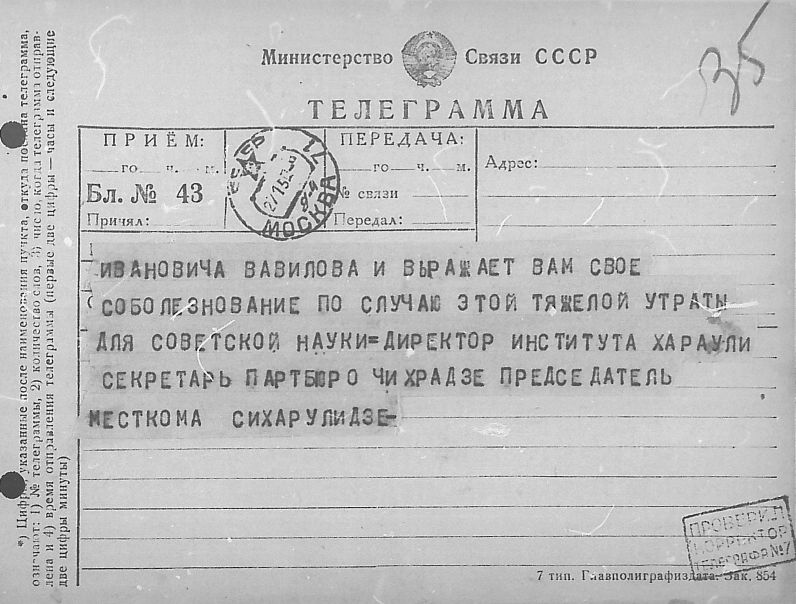 35
Министерство Связи СССР
ТЕЛЕГРАММА
ПРИЁМ:
го ч. м.
Бл. № 43
Принял:
МОСКВА
ПЕРЕДАЧА:
го ч. м.
№ связи
Передал:
Адрес:
ИВАНОВИЧА ВАВИЛОВА И ВЫРАЖАЕТ ВАМ СВОЕ
СОБОЛЕЗНОВАНИЕ ПО СЛУЧАЮ ЭТОЙ ТЯЖЕЛОЙ УТРАТЫ
ДЛЯ СОВЕТСКОЙ НАУКИ=ДИРЕКТОР ИНСТИТУТА ХАРАУЛИ
СЕКРЕТАРЬ ПАРТБЮРО ЧИХРАДЗЕ ПРЕДСЕДАТЕЛЬ
МЕСТКОМА СИХАРУЛИДЗЕ-
ПРОВЕРИЛ
КОРРЕКТОР
ТЕЛЕГРАФА №7
7 тип. Главполиграфиздата. Зак. 854
*) Цифры, указанные после наименования пункта, откуда послана телеграмма,
означают: 1) № телеграммы, 2) количество слов, 3) число, когда телеграмма отправ-
лена и 4) время отправления телеграммы (первые две цифры — часы и следующие
две цифры минуты)